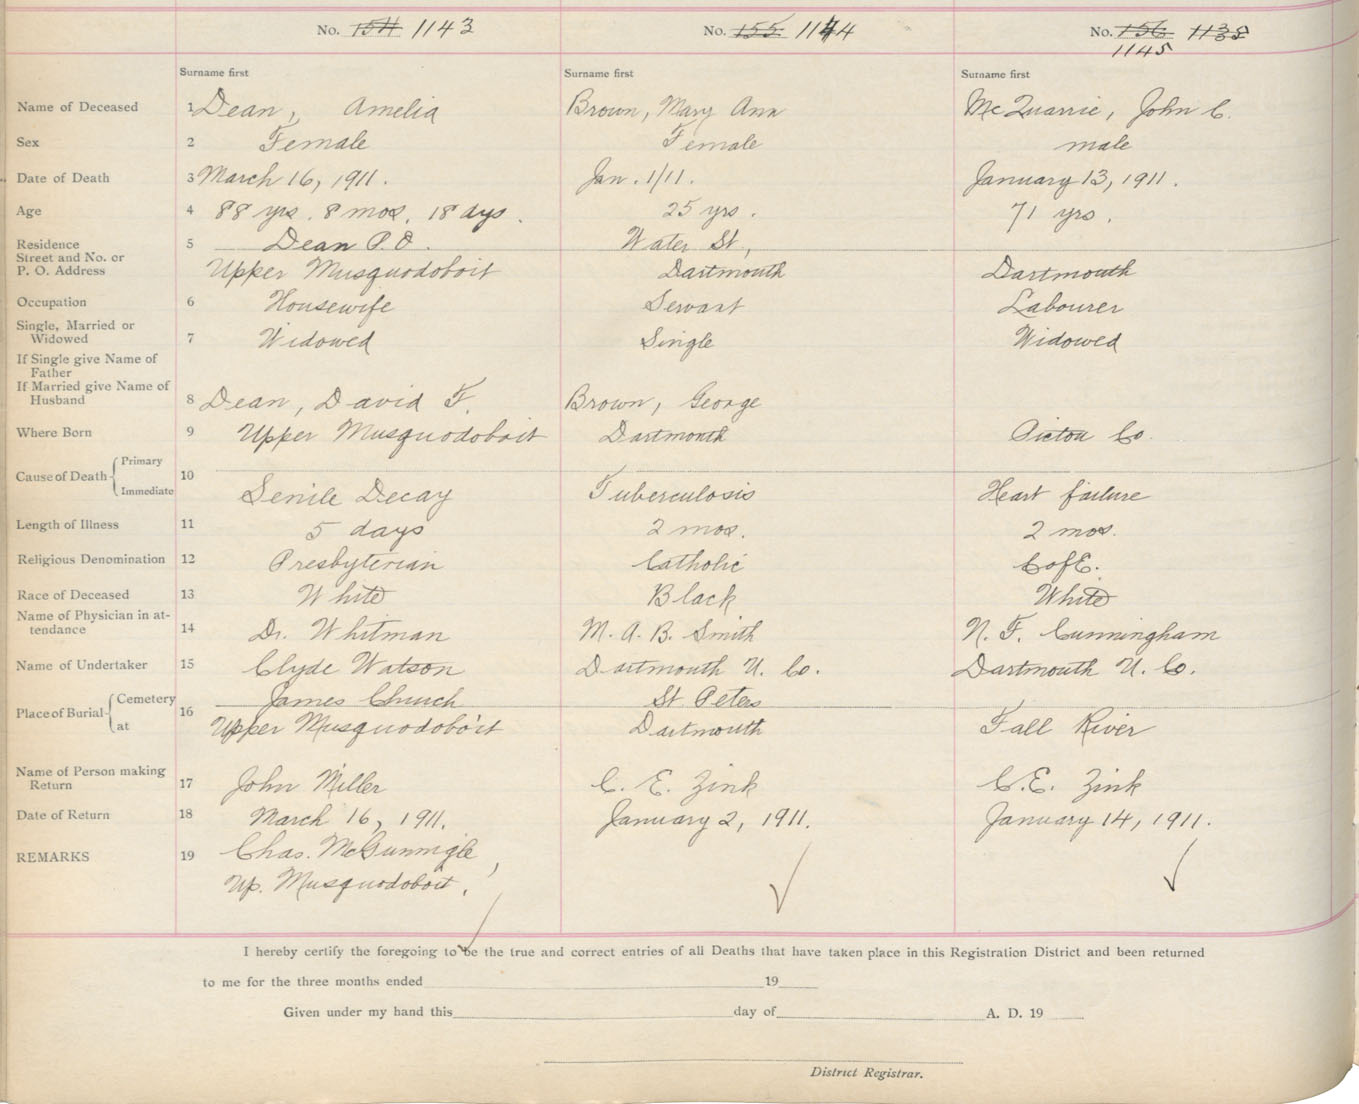 No. 154 1143 No. 155 1144 No. 156 1138
1145
Surname first Surname first Surname first
Name of Deceased 1 Dean, Amelia Brown, Mary Ann McQuarrie, John C.
Sex 2 Female Female male
Date of Death 3 March 16, 1911. Jan. 1/11. January 13, 1911.
Age 4 88 yrs. 8 mos. 18 days. 25 yrs. 71 yrs.
Residence 5 Dean P.O. Water St.,
Street and No. or
P. O. Address Upper Musquodoboit Dartmouth Dartmouth
Occupation 6 Housewife Servant Labourer
Single, Married or
Widowed 7 Widowed Single Widowed
If Single give Name of
Father
If Married give Name of
Husband 8 Dean, David F. Brown, George
Where Born 9 Upper Musquodoboit Dartmouth Pictou Co.
Cause of Death Primary 10
Immediate Senile Decay Tuberculosis Heart failure
Length of Illness 11 5 days 2 mos. 2 mos.
Religious Denomination 12 Presbyterian Catholic C of E.
Race of Deceased 13 White Black White
Name of Physician in at-
tendance 14 Dr. Whitman M. A. B. Smith N. F. Cunningham
Name of Undertaker 15 Clyde Watson Dartmouth U. Co. Dartmouth U. Co.
Place of Burial Cemetery 16 James Church St Peters
at Upper Musquodoboit Dartmouth Fall River
Name of Person making
Return 17 John Miller C. E. Zink C. E. Zink
Date of Return 18 March 16, 1911. January 2, 1911. January 14, 1911.
REMARKS 19 Chas. McGunnigle,
Up. Musquodoboit.
I hereby certify the foregoing to be the true and correct entries of all Deaths that have taken place in this Registration District and been returned
to me for the three months ended 19
Given under my hand this day of A. D. 19
District Registrar.